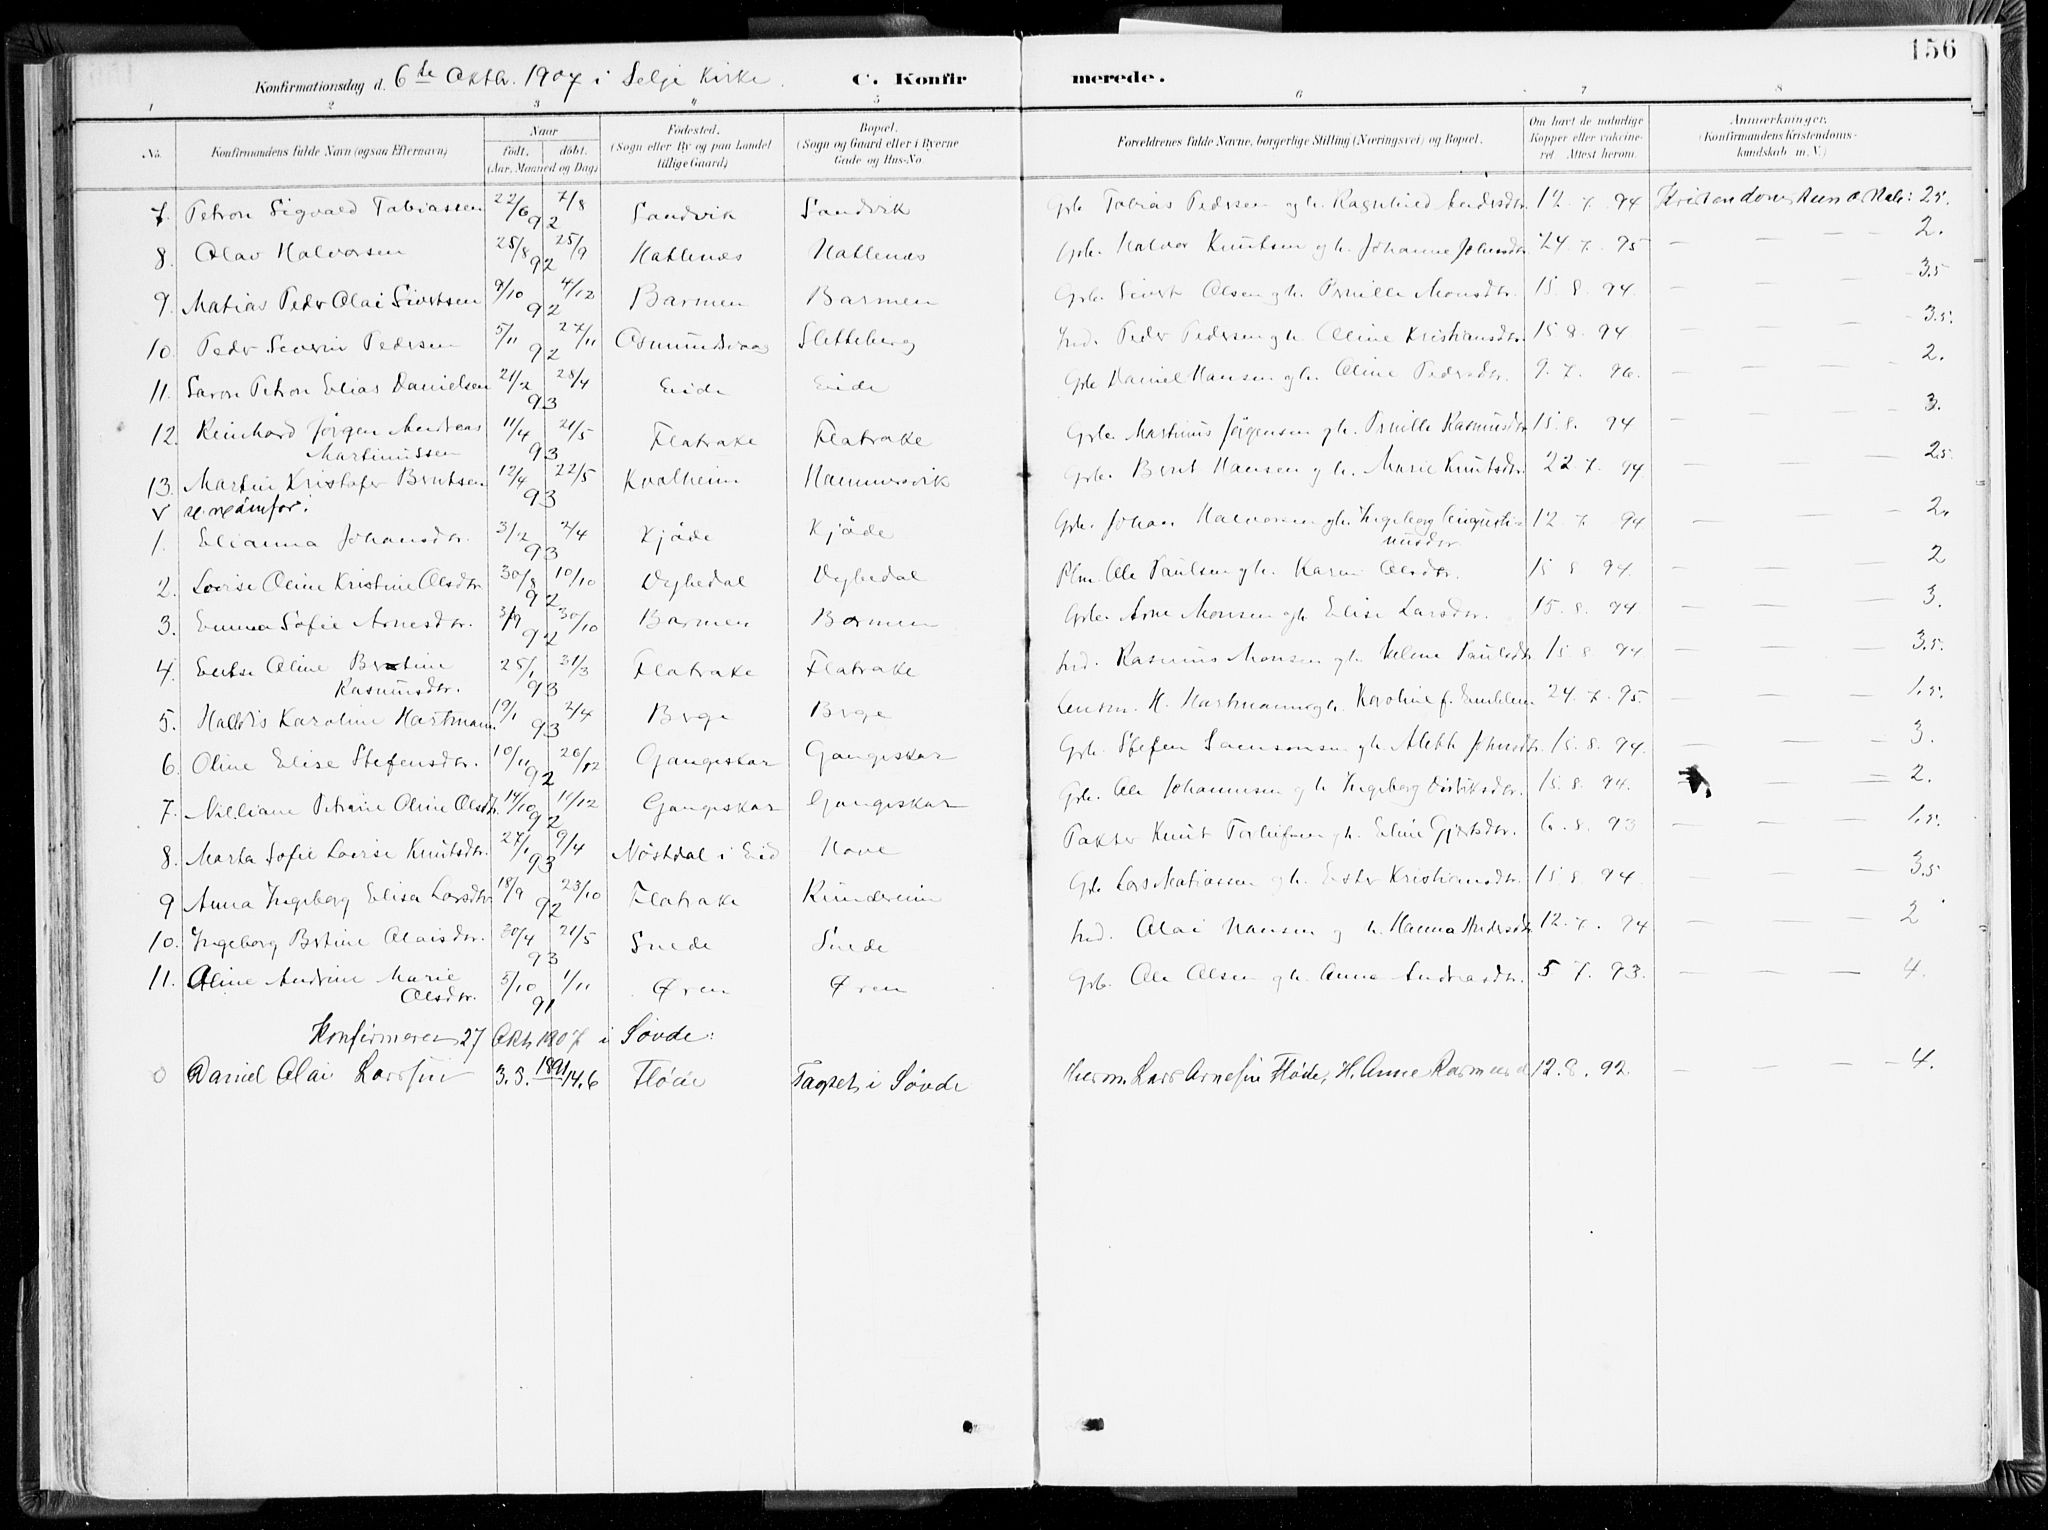 156
Konfirmationsdag d. 6te Oktbr. 1907 i Selje Kirke. C. Konfirmerede.
1 2 3 4 5 6 7 8
No.
Konfirmandens fulde Navn (ogsaa Efternavn)
Naar
født, døbt.
(Aar, Maaned og Dag)
Fødested.
(Sogn eller By og paa Landet tillige Gaard)
Bopæl.
(Sogn og Gaard eller i Byerne Gade og Hus-No.
Forældrenes fulde Navne, borgerlige Stilling (Næringsvei) og Bopæl.
Om havt de naturlige Kopper eller vakcineret. Attest herom.
Anmærkninger.
(Konfirmandens Kristendomskundskab m. V.)
7. Petron Sigvald Tobiassen 22/6 92 7/8 Sandvik Sandvik Grb. Tobias Pedersen og h. Ragnhild Andersdtr. 12. 7. 94 Kristendoms 2.5.
8. Olav Halvorsen 25/8 92 25/9 Hatlenes Hatlenes Grb. Halvor Knutsen og h. Johanne Johnsdtr. 24. 7. 95 — — — 2.
9. Matias Pedr Olai Sivertsen 9/10 92 4/12 Barmen Barmen Grb. Sivert Olsen og h. Pernille Monsdtr. 15. 8. 94. — — — 3.5
10. Pedr Severin Pedersen 5/11 92 27/11 Osmundsvaag Sletteberg Ind. Peder Pedersen og h. Oline Kristiansdtr. 15. 8. 94 — — — 3.5.
11. Saron Petron Elias Danielsen 21/2 93 28/4 Eide Eide Grb. Daniel Hansen og h. Oline Pedersdtr. 9. 7. 96. — — — 2.
12. Reinhard Jørgen Andreas Martinussen 11/4 93 21/5 Flatrake Flatrake Grb. Martinus Jørgensen og h. Pernille Rasmusdtr. 15. 8. 94 — — — 3.
13. Martin Kristofer Berntsen 12/4 93 22/5 Kvalheim Hammersvik Grb. Bernt Hansen og h. Marie Knutsdtr. 22. 7. 94 — — — 2.5.
v se nedanfor.
1. Elianna Johansdtr. 3/2 93 2/4 Kjøde Kjøde Grb. Johan Halvorsen og h. Ingeborg Augustinusdtr. 12. 7. 94 — — — 2.
2. Lovise Oline Kristine Olsdtr 30/8 92 10/10 Dybedal Dybedal Plm. Ole Paulsen og h. Karen Olsdtr. 15. 8. 94. — — — 2
3. Emma Sofie Arnesdtr. 3/9 92 30/10 Barmen Barmen Grb. Arne Monsen og h. Elise Larsdtr. 15. 8. 94 — — — 3.
4. Oline Bertine Rasmusdtr. 25/1 93 31/3 Flatrake Flatrake Ind. Rasmus Monsen og h. Helene Paulsdtr 15. 8. 94 — — — 3.5.
5. Halldis Karoline Hartmann 19/1 93 2/4 Berge Berge Lensm. H. Hartmann og h. Karoline f. Emblem 24. 7. 95. — — — 1.5.
6. Oline Elise Stefensdtr. 10/11 92 26/12 Gangeskar Gangeskar Grb. Stefen Samsonsen og h. Aleth Johnsdtr. 15. 8. 94. — — — 3.
7. Villiane Petrine Oline Olsdtr. 14/10 92 11/12 Gangeskar Gangeskar Grb. Ole Johannesen og h. Ingeborg Didriksdtr. 15. 8. 94. — — — 2.
8. Marta Sofie Lovise Knutsdtr. 27/1 93 9/4 Nøstdal i Eid Hove Pakter Knut Torleifsen og h. Eline Gjertsdtr. 6. 8. 93 — — — 1.5.
9 Anna Ingeborg Elisa Larsdtr 18/9 92 23/10 Flatrake Rundereim Grb Lars Matiassen og h. Ester Kristiansdtr. 15. 8. 94. — — — 3.5
10. Ingeborg Bertine Olaisdtr. 20/4 93 21/5 Snede Snede Ind. Olai Hansen og h. Hanna Andersdtr 12. 7. 94 — — — 2
11. Oline Andrine Marie Olsdtr. 5/10 91 1/11 Øren Øren Grb. Ole Olsen og h. Anna Andreasdtr. 5 7. 93. — — — 4.
Konfirmeret 27 Okt. 1907 i Søvde:
0 Daniel Olai Larssen 3.3. 1891 14.6 Fløde i Søvde Lars Arnesen Fløde, H. Anne Rasmusd 12. 8. 92 — — — 4.